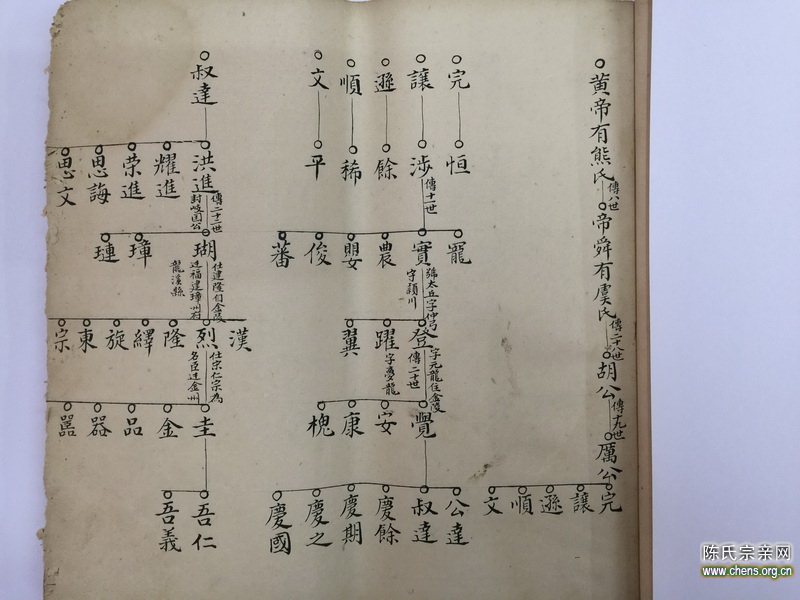 黄帝有熊氏
傳八世
帝舜有虞氏
傳二十八世
胡公
傳十九世
厲公
完
讓
遜
順
文
完
恒
讓
涉
傳十一世
遜
餘
順
稀
文
平
寵
實
號太丘字仲弓
字穎川
農
嬰
俊
蕃
登
字元龍住金陵
傳二十世
躍
字慶龍
翼
覺
安
康
槐
公達
叔達
慶餘
慶期
慶之
慶國
叔達
洪進
傳二十二世
封岐国公
耀進
荣進
思誨
思文
瑚
仕建隆自金陵
迁福建璋州府
龍溪縣
璋
璉
漢
烈
仕宗仁宗為
名臣迁金州
隆
繹
旋
東
宗
圭
金
品
器
嚚
吾仁
吾義
陈氏宗亲网
www.chens.org.cn